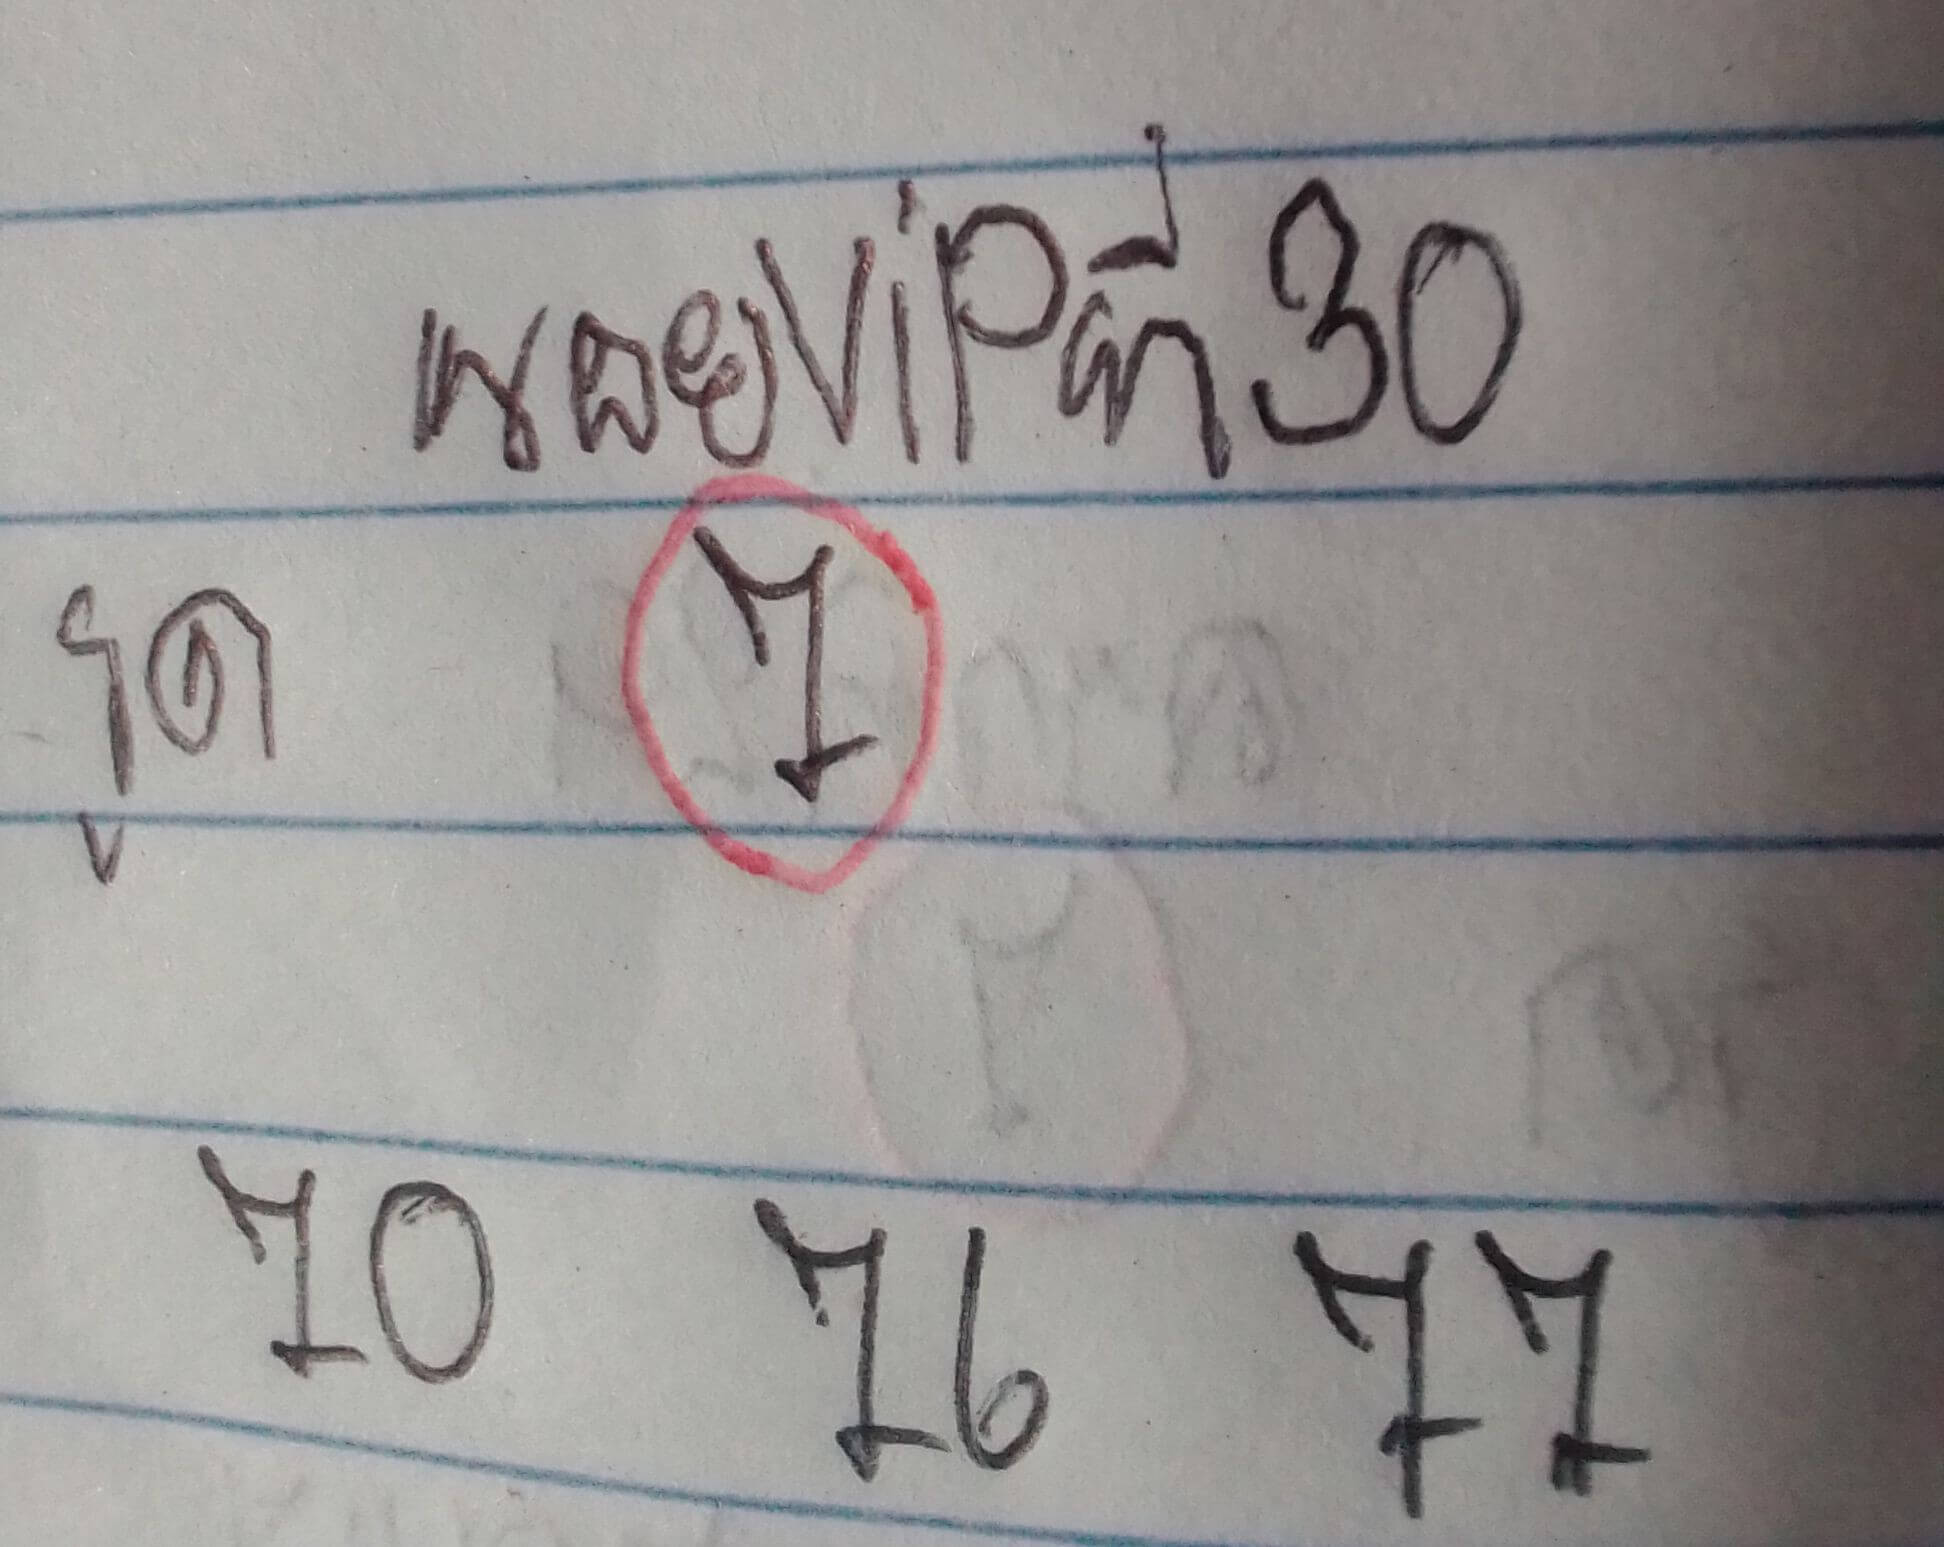 นอยVipที่30
รูด 7
70 76 77